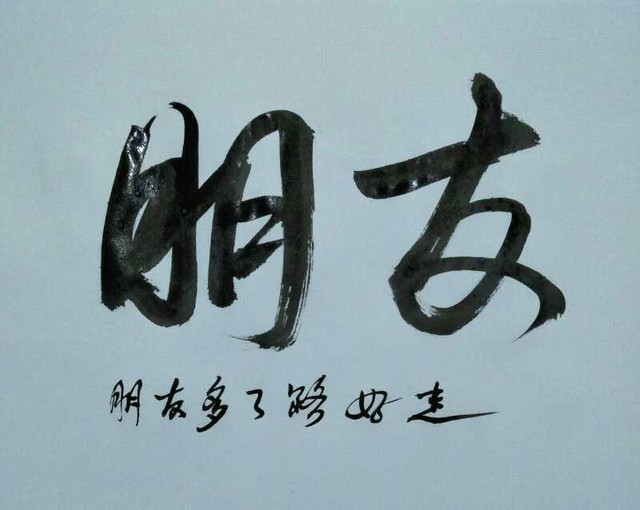 朋友
朋友多了路好走